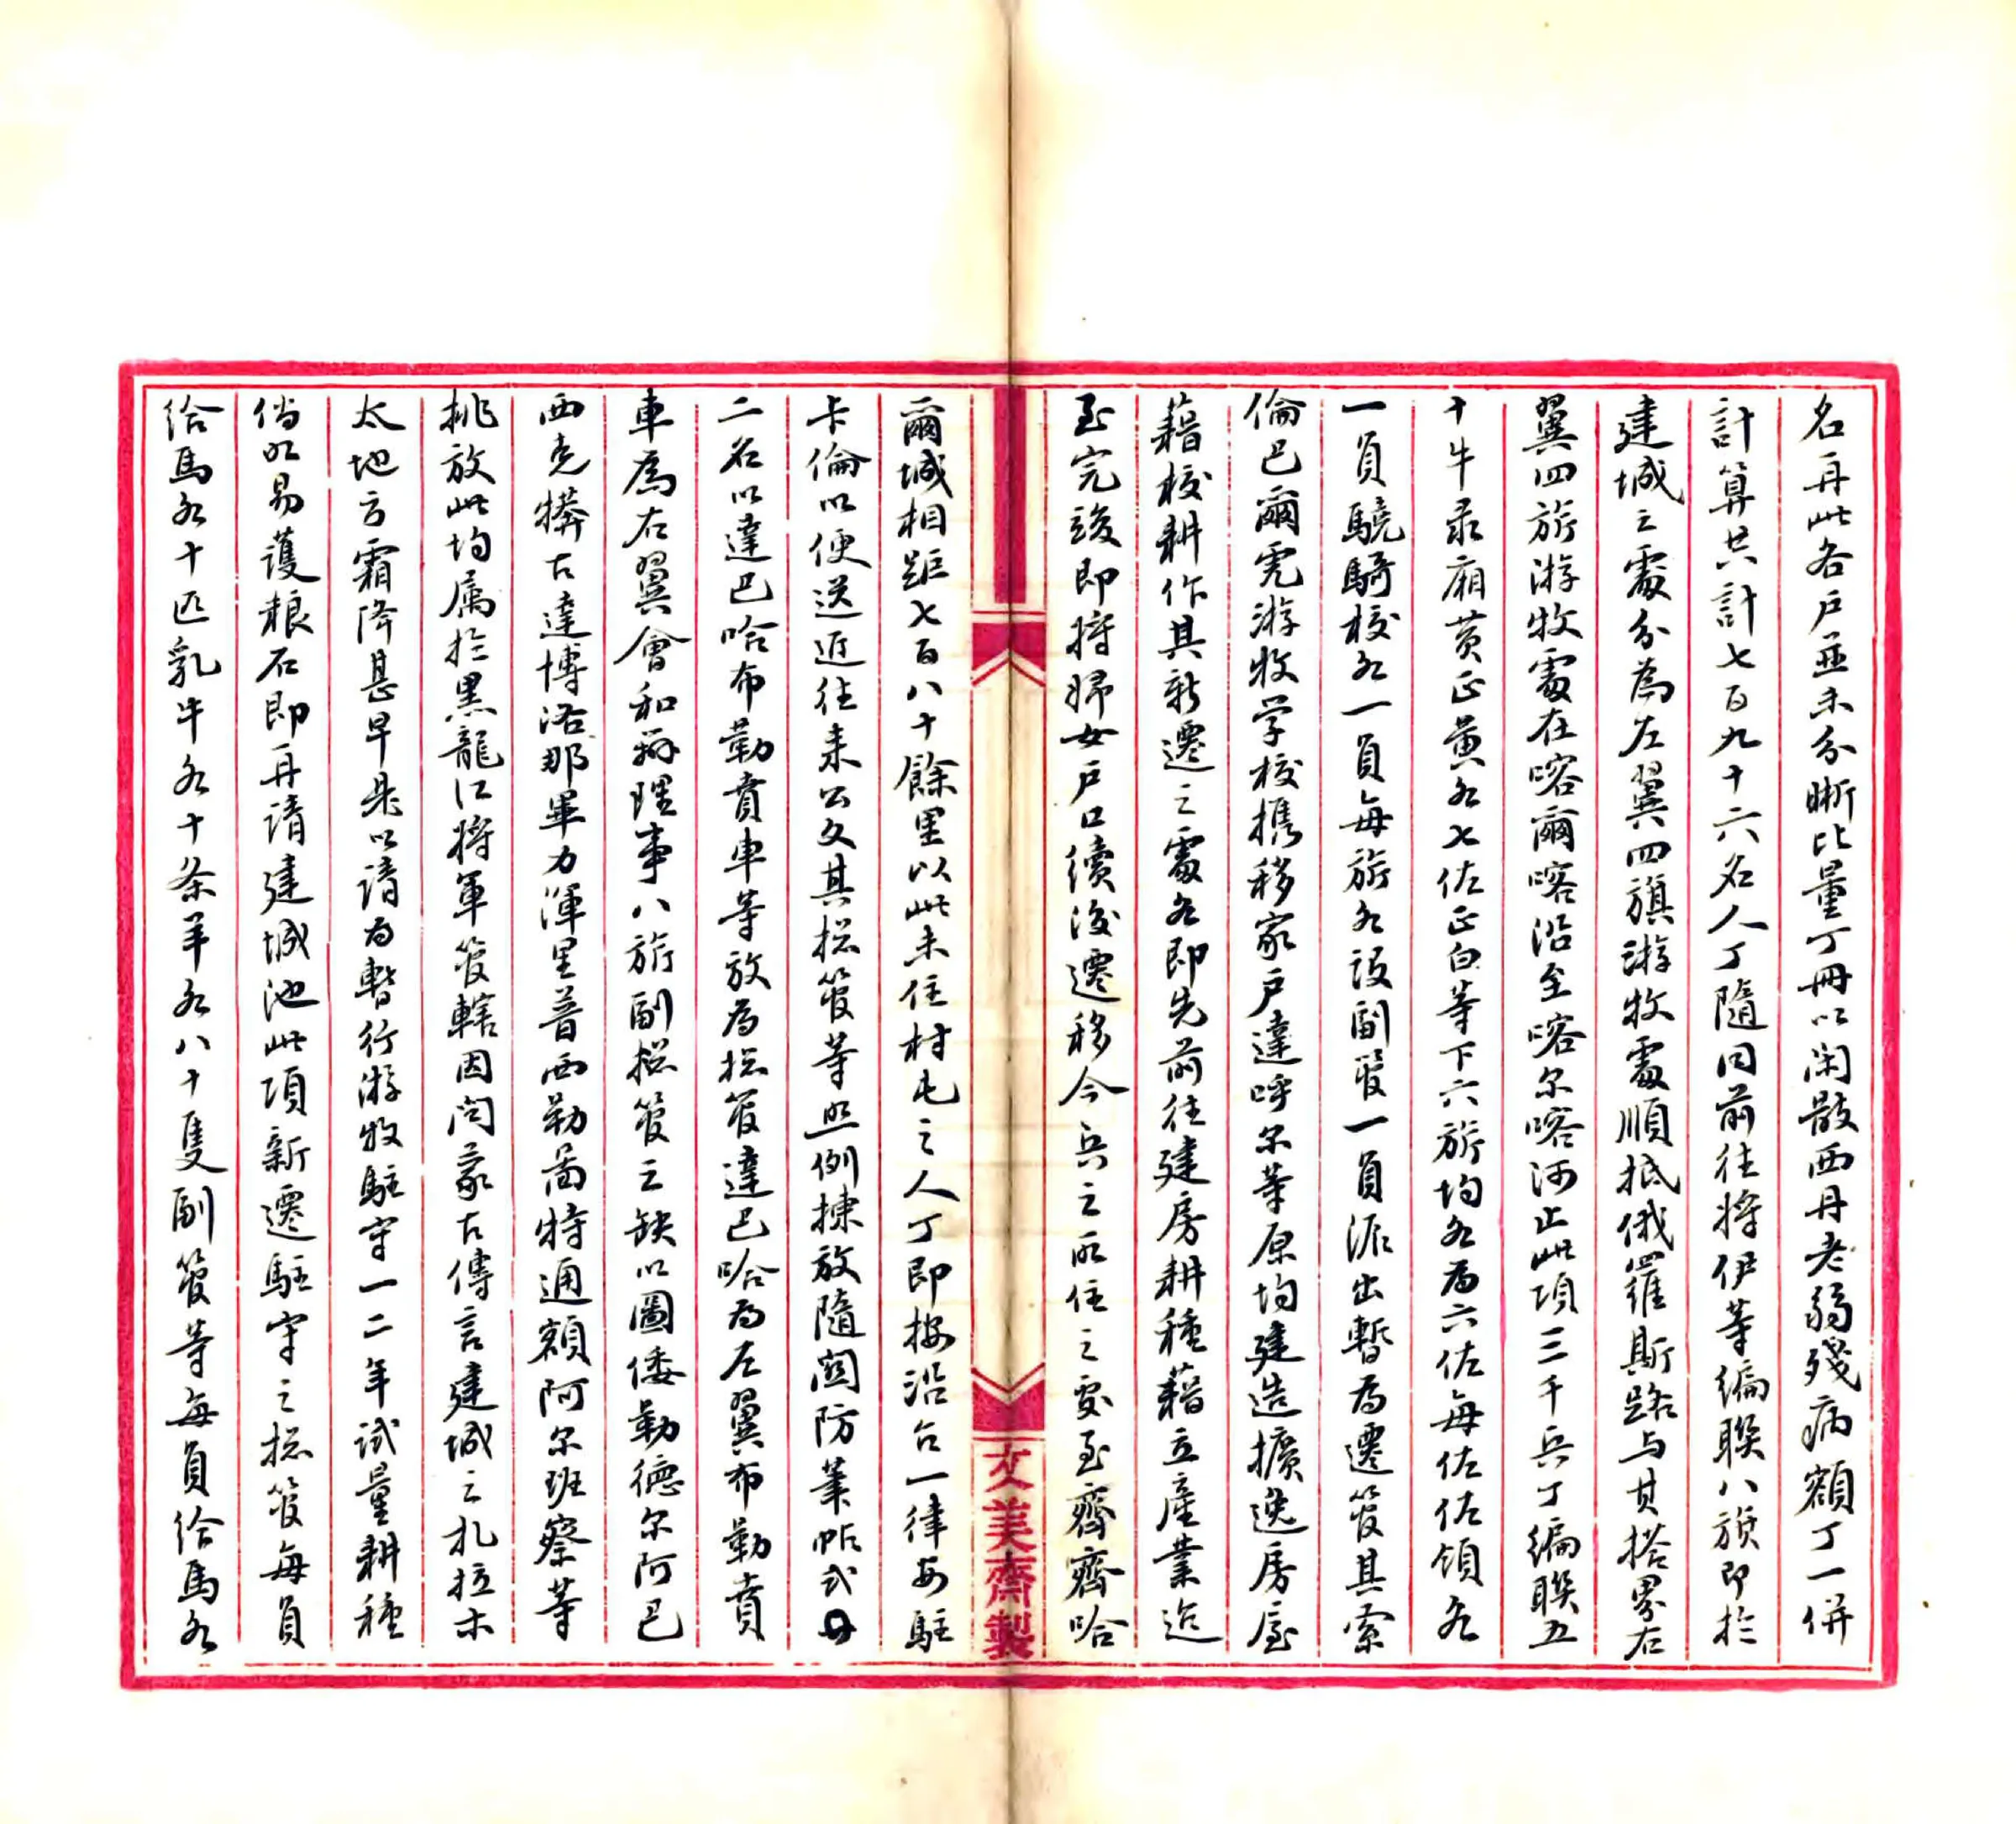 名再此各户並未分晰比量丁冊以闲散西丹老弱殘病額丁一併
計算共計七百九十六名人丁隨同前往将伊等编聯八旗即扵
建城之處分為左翼四旗游牧處順抵俄羅斯路与其搭界右
翼四旂游牧處在喀爾喀沿至喀尔喀河止此項三千兵丁编聯五
十牛录廂黄正黄各七佐正白等下六旂均各为六佐每佐佐领各
一員驍騎校各一員每旂各设副管一員派出暫為遷管其索
倫巴爾虎游牧学校携移家户達呼尔等原均建造擴逸房屋
藉校耕作其新遷之處各即先前往建房耕種藉立產業迨
至完竣即将婦女户口續後遷移今兵之所住之处至齊齊哈
爾城相距七百八十餘里以此未住村屯之人丁即按沿台一律安駐
卡倫以便送迎往来公文其揔管等照例揀放隨関防筆帖式
二名以達巴哈布勒賁車等放为揔管達巴哈为左翼布勒賁
車為右翼會和辦理事八旂副揔管之缺以圖倭勒德尔阿巴
西克犇古達博洛那畢力渾里普西勒啚特通額阿尔班察等
挑放此均属扵黑龍江将軍管轄因问蒙古傳言建城之札拉木
太地方霜降甚早是以请为暫行游牧駐守一二年试量耕種
倘好易護粮石即再请建城池此項新遷駐守之揔管每員
给馬各十匹乳牛各十条羊各八十隻副管等每員给馬各
文美齋製